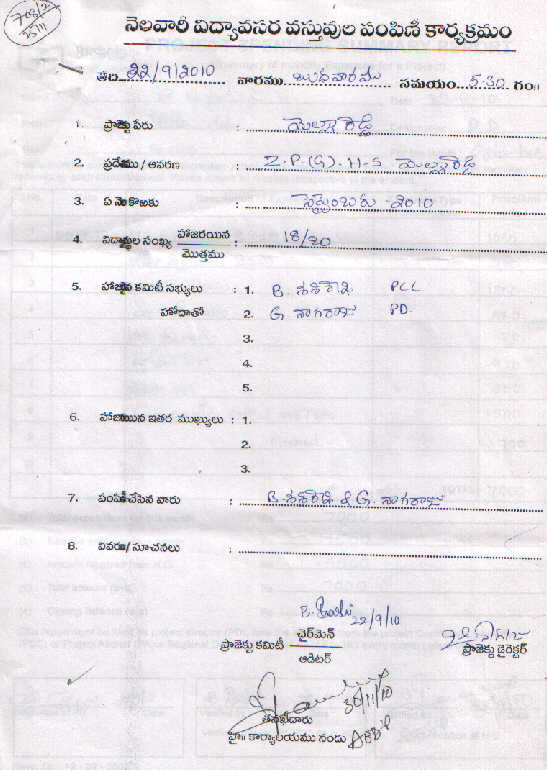 నెలవారీ విద్యావసర వస్తువుల పంపిణీ కార్యక్రమం
తేది 22/9/2010 వారము బుధవారము సమయం...5.30 గం॥
1. ప్రాజెక్టు పేరు :
2. ప్రదేశము / ఆవరణ : Z.P.(G).H.S
3. ఏ నెల కొఱకు : సెప్టెంబరు - 2010
4. విద్యార్థుల సంఖ్య హాజరయిన / మొత్తము : 18/20
5. హాజరైన కమిటీ సభ్యులు : 1. B. శశిరేఖ PCL
హోదాతో 2. G. నాగరాజు PD.
3.
4.
5.
6. హాజరయిన ఇతర ముఖ్యులు : 1.
2.
3.
7. పంపిణీచేసిన వారు : B. శశిరేఖ & G. నాగరాజు
8. వివరణ/ సూచనలు :
B. Sashi 22/9/10
ప్రాజెక్టు కమిటీ చైర్‌మెన్ / ఆడిటర్
ప్రాజెక్టు డైరెక్టర్
30/11/10
తనిఖీదారు
హైll కార్యాలయము నందు